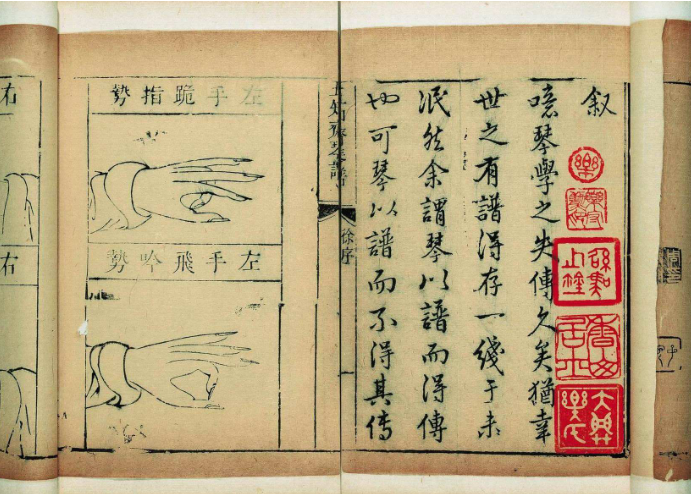 叙
噫琴學之失傳久矣猶幸
世之有譜得存一綫于未
泯然余謂琴以譜而得傳
也可琴以譜而不得其传
樂
大興樂氏
五知齋琴譜
徐序
左手跪指勢
左手飛吟勢
右
右